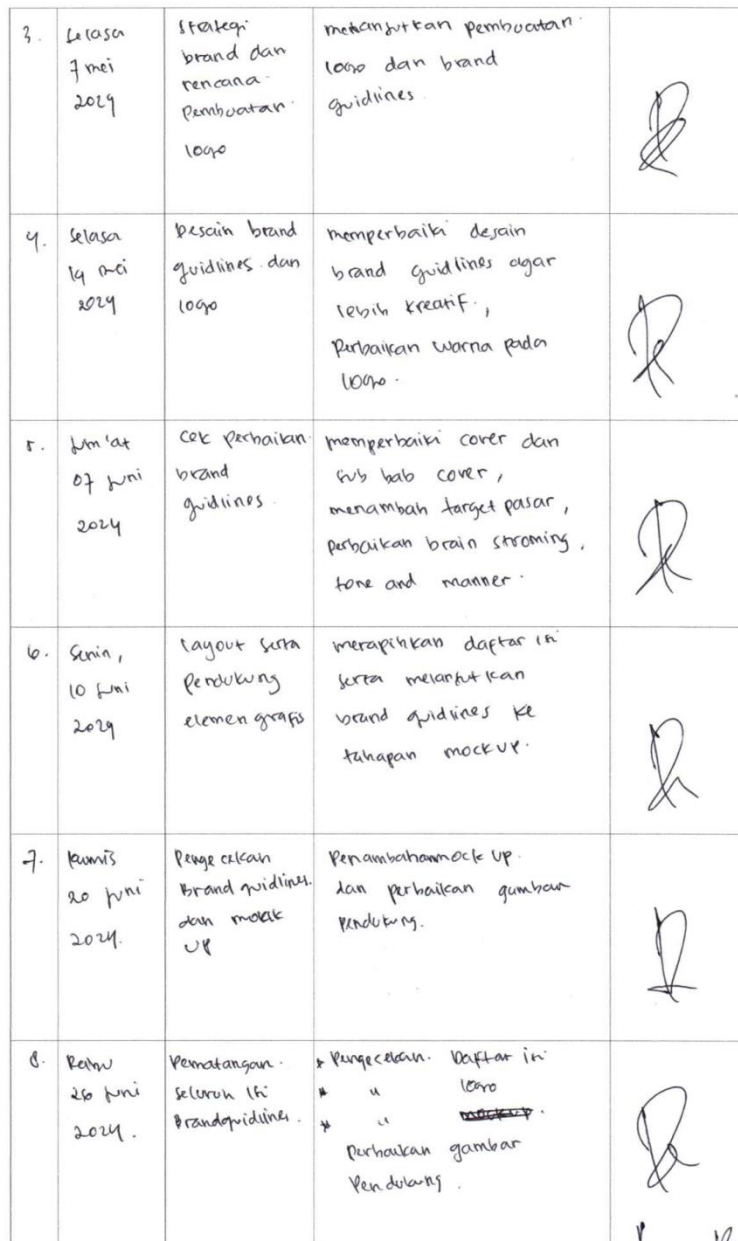 3.
Selasa
7 mei
2024
Strategi
brand dan
rencana
Pembuatan
logo
melanjutkan pembuatan
logo dan brand
guidlines
4.
Selasa
14 mei
2024
Desain brand
guidlines dan
logo
memperbaiki desain
brand guidlines agar
lebih kreatif,
Perbaikan warna pada
logo.
5.
Jum'at
07 Juni
2024
Cek perbaikan
brand
guidlines
memperbaiki cover dan
sub bab cover,
menambah target pasar,
perbaikan brain stroming,
tone and manner.
6.
Senin,
10 Juni
2024
layout serta
Pendukung
elemen grafis
merapihkan daftar isi
serta melanjutkan
brand guidlines ke
tahapan mockup.
7.
Kamis
20 Juni
2024.
Pengecekan
Brand guidlines
dan mock
UP
Penambahan mock up
dan perbaikan gambar
Pendukung.
8.
Rabu
26 Juni
2024.
Pematangan
seluruh isi
Brandguidlines.
* Pengecekan. Daftar isi
* " logo
* " mockup.
Perbaikan gambar
Pendukung.